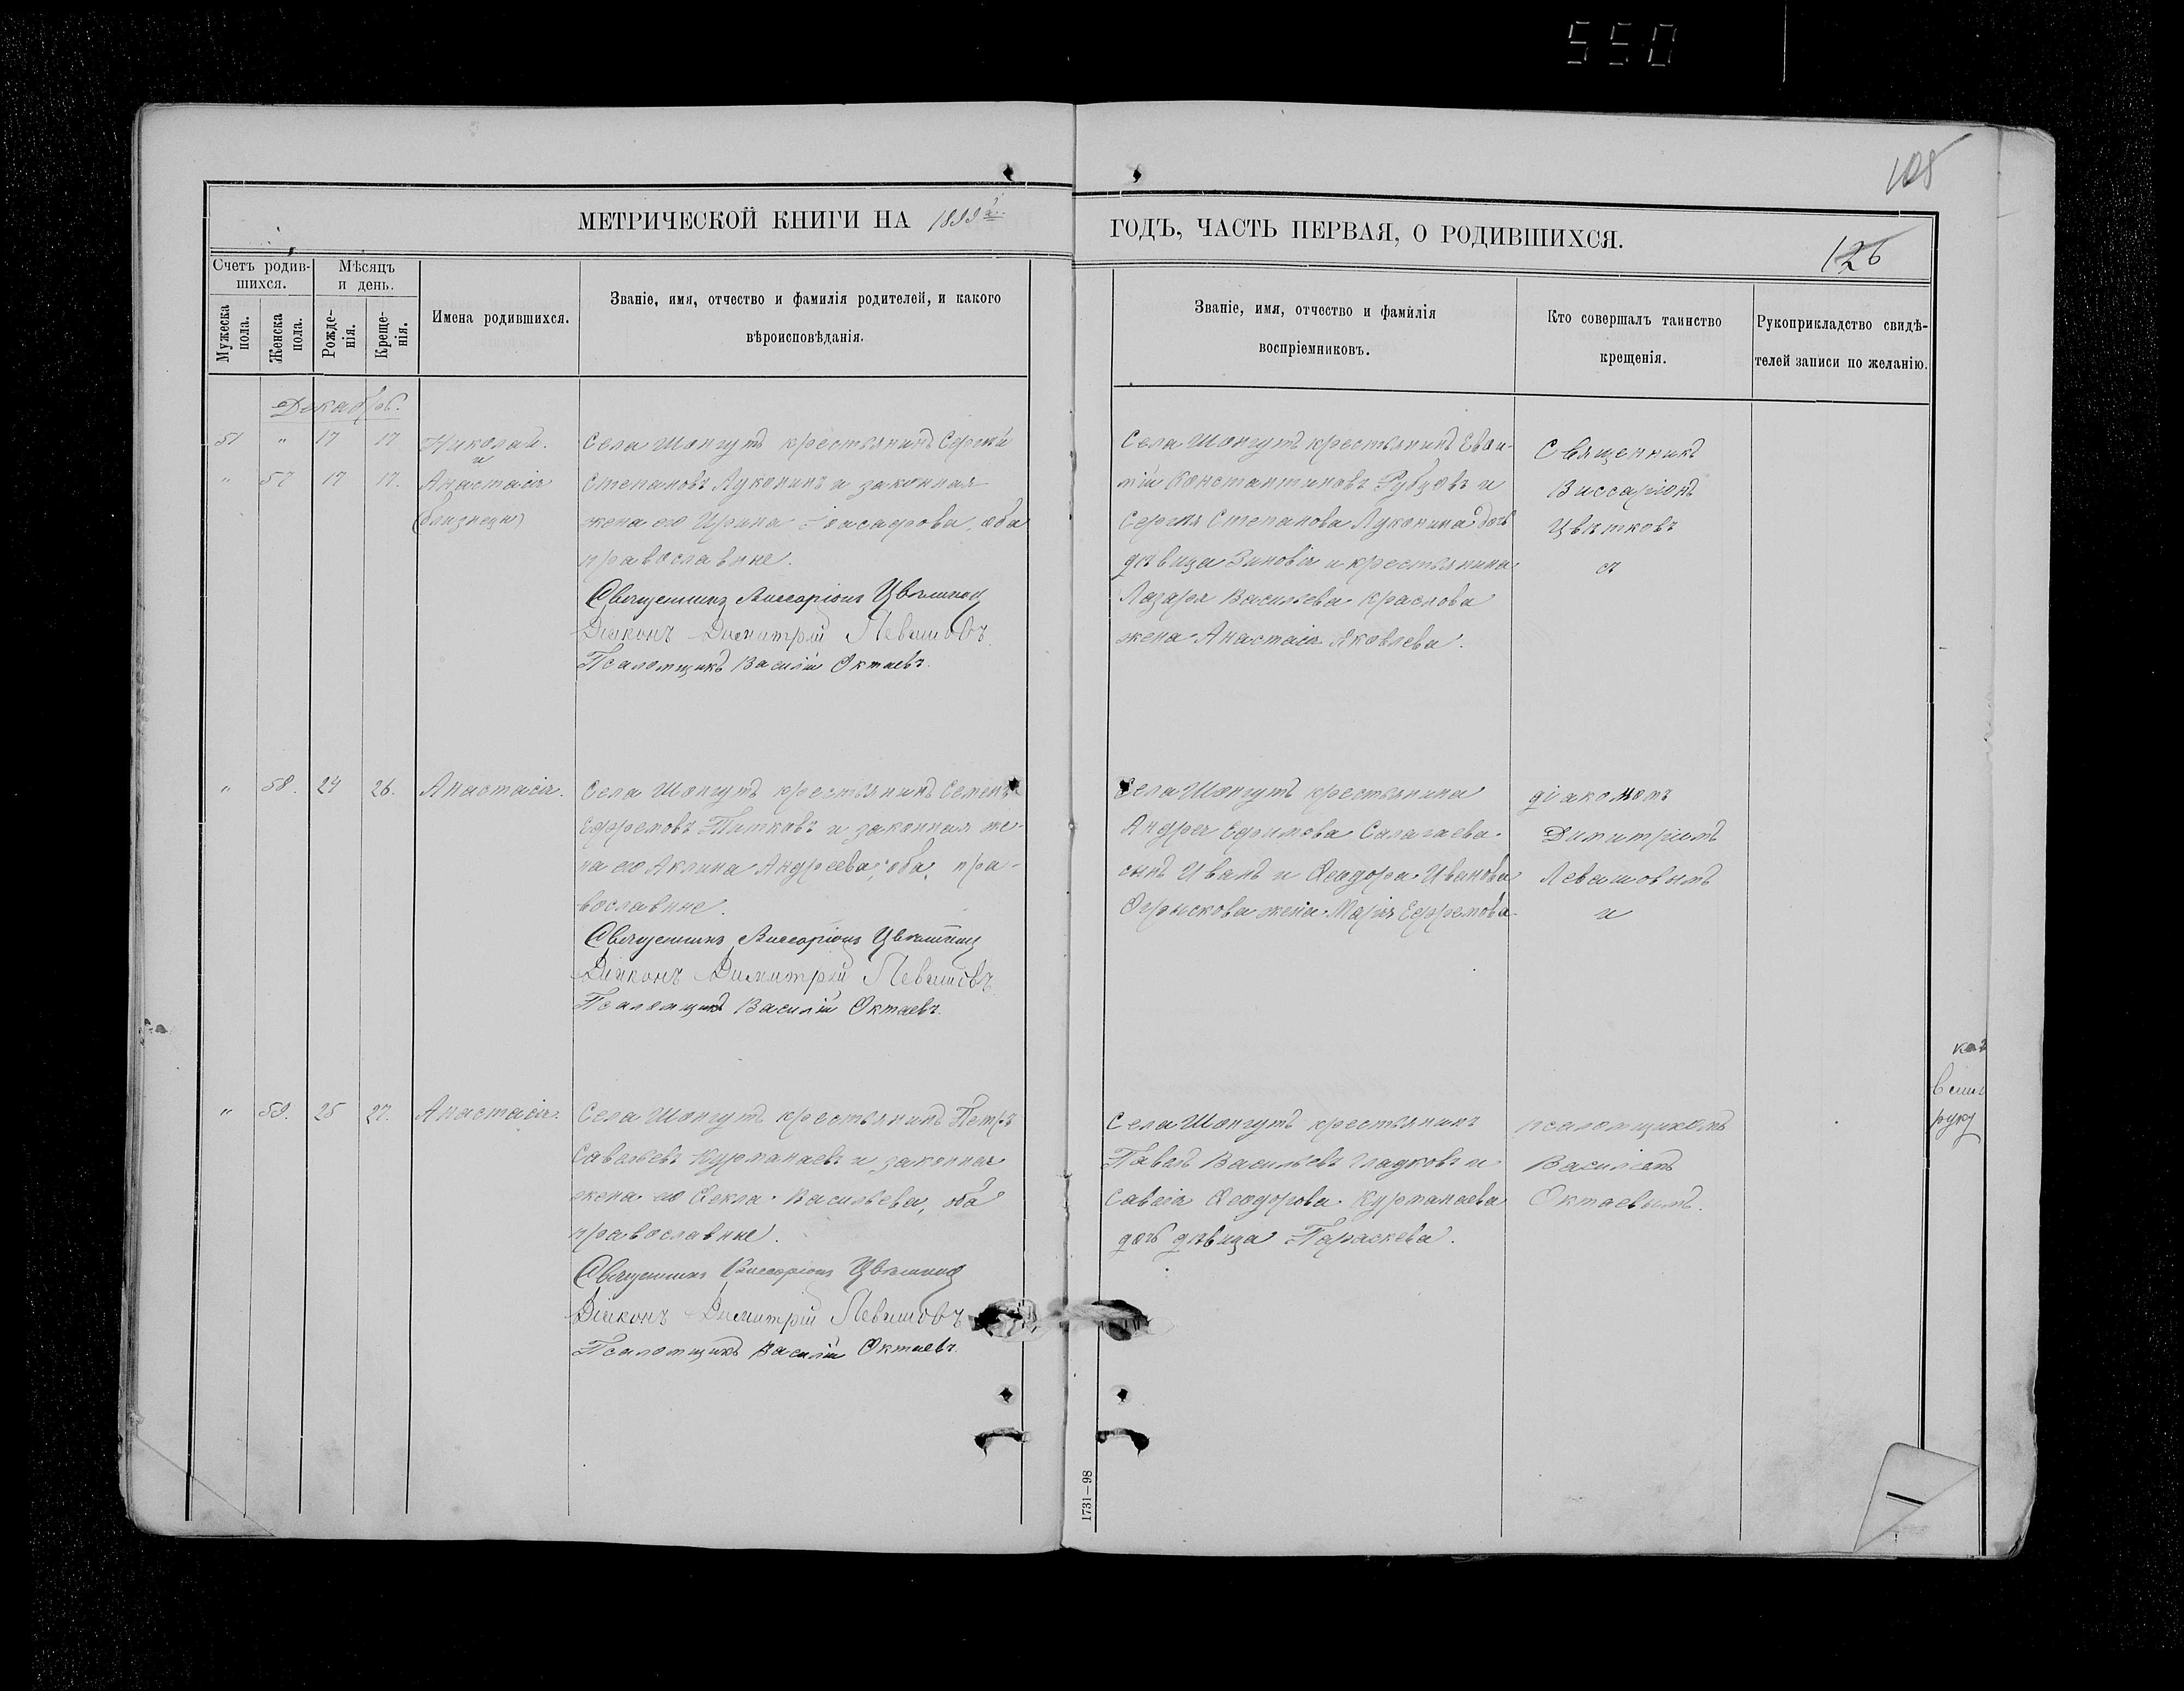 550
105
МЕТРИЧЕСКОЙ КНИГИ НА 1899й
ГОДЪ, ЧАСТЬ ПЕРВАЯ, О РОДИВШИХСЯ.
126
Счетъ родив-
шихся.
Мѣсяцъ
и день.
Мужеска
пола.
Женска
пола.
Рожде-
нія.
Креще-
нія.
Имена родившихся.
Званіе, имя, отчество и фамилія родителей, и какого
вѣроисповѣданія.
Званіе, имя, отчество и фамилія
воспріемниковъ.
Кто совершалъ таинство
крещенія.
Рукоприкладство свидѣ-
телей записи по желанію.
Декабрь.
51 " 17 17 Николай.
и
" 57 17 17. Анастасія
(близнецы)
Села Шонгутъ крестьянинъ Сергѣй
Степановъ Луконинъ и законная
жена его Ирина оба
православные.
Священникъ Виссаріонъ Цвѣтковъ
Діаконъ Димитрій Левашовъ
Псаломщикъ Василій Октаевъ.
Села Шонгутъ крестьянинъ
Константиновъ Рубцовъ и
Сергѣя Степанова Луконина дочь
дѣвица Зиновія и крестьянина
Лазаря Васильева Краснова
жена Анастасія Яковлева.
Священникъ
Виссаріонъ
Цвѣтковъ
съ
" 58. 24 26. Анастасія.
Села Шонгутъ крестьянинъ Семенъ
Ефремовъ Титковъ и законная же-
на его Акилина Андреева, оба пра-
вославные.
Священникъ Виссаріонъ Цвѣтковъ
Діаконъ Димитрій Левашовъ
Псаломщикъ Василій Октаевъ.
Села Шонгутъ крестьянина
Андрея Ефимова Салагаева
сынъ Иванъ и Ѳеодора Иванова
Огрыскова жена Марія Ефремова.
діакономъ
Димитріемъ
Левашовымъ
и
" 59. 25 27. Анастасія.
Села Шонгутъ крестьянинъ Петръ
Савельевъ Курманаевъ и законная
жена его Ѳекла Васильева, оба
православные.
Священникъ Виссаріонъ Цвѣтковъ
Діаконъ Димитрій Левашовъ
Псаломщикъ Василій Октаевъ.
Села Шонгутъ крестьянинъ
Павелъ Васильевъ Гладковъ и
Савелія Ѳеодорова Курманаева
дочь дѣвица Параскева.
псаломщикомъ
Василіемъ
Октаевымъ.
руку
1731—98